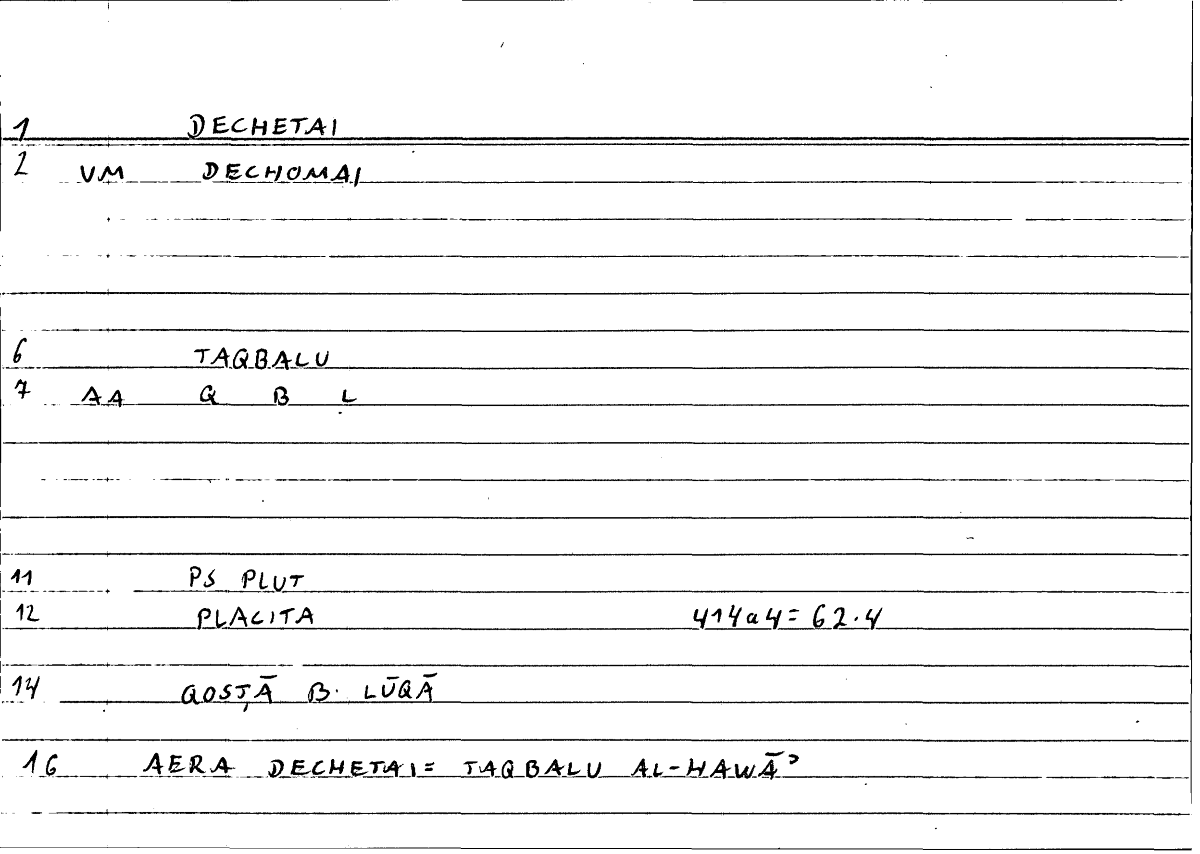 1 DECHETAI
2 VM DECHOMAI
6 TAQBALU
7 AA Q B L
11 PS PLUT
12 PLACITA 414a4= 62.4
14 QOSṬĀ B. LŪQĀ
16 AERA DECHETAI= TAQBALU AL-HAWĀʾ